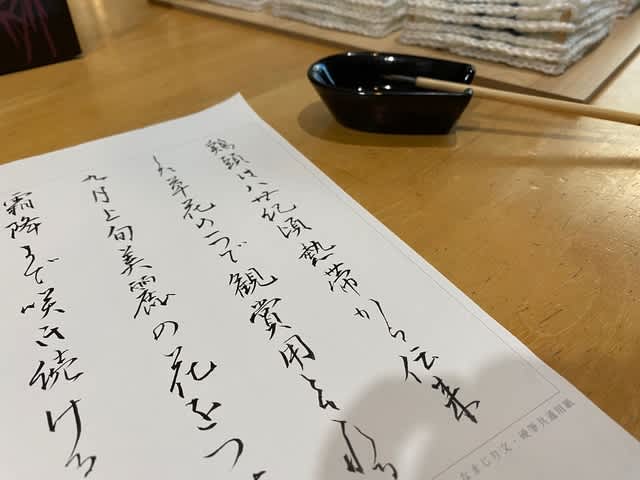 鶏頭は八世紀頃熱帯から伝来
した草花の一つで観賞用となる
九月上旬美麗の花をつ
霜降まで咲き続ける
なまじり文・硬筆共通用紙